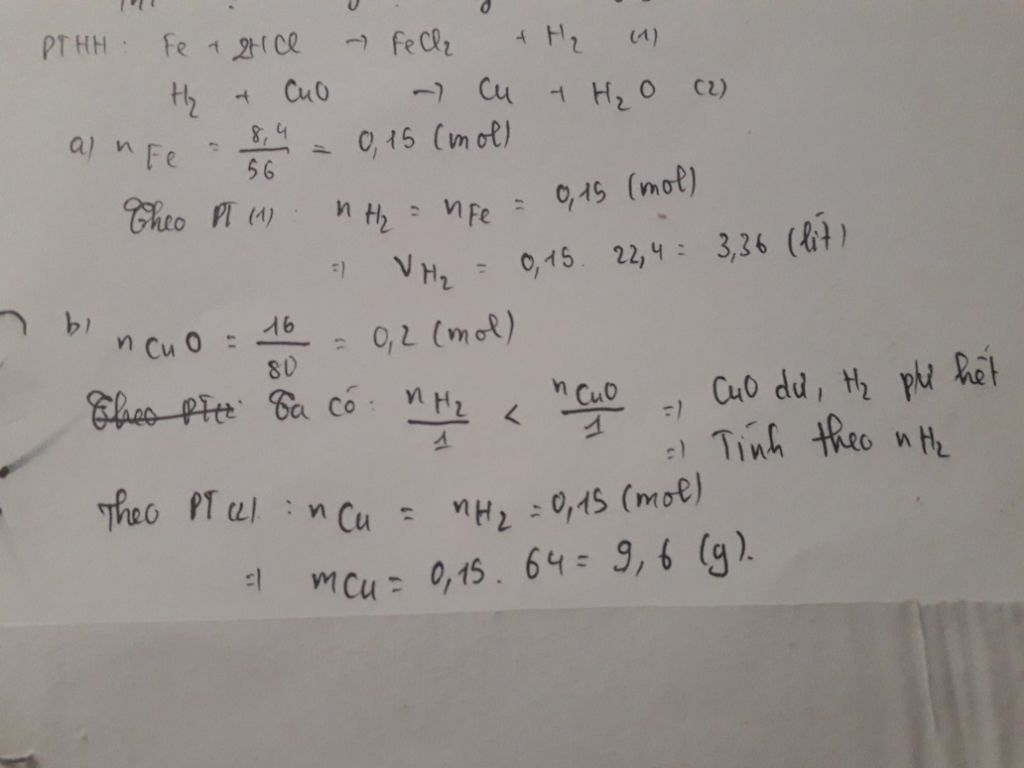 PTHH : Fe + 2HCl → FeCl2 + H2 (1)
H2 + CuO → Cu + H2O (2)
a) nFe = 8,4/56 = 0,15 (mol)
Theo PT (1) : nH2 = nFe = 0,15 (mol)
=) VH2 = 0,15. 22,4 = 3,36 (lít)
b) nCuO = 16/80 = 0,2 (mol)
Ta có : nH2/1 < nCuO/1 =) CuO dư, H2 pư hết
=) Tính theo nH2
Theo PT (2) : nCu = nH2 = 0,15 (mol)
=) mCu = 0,15. 64 = 9,6 (g).